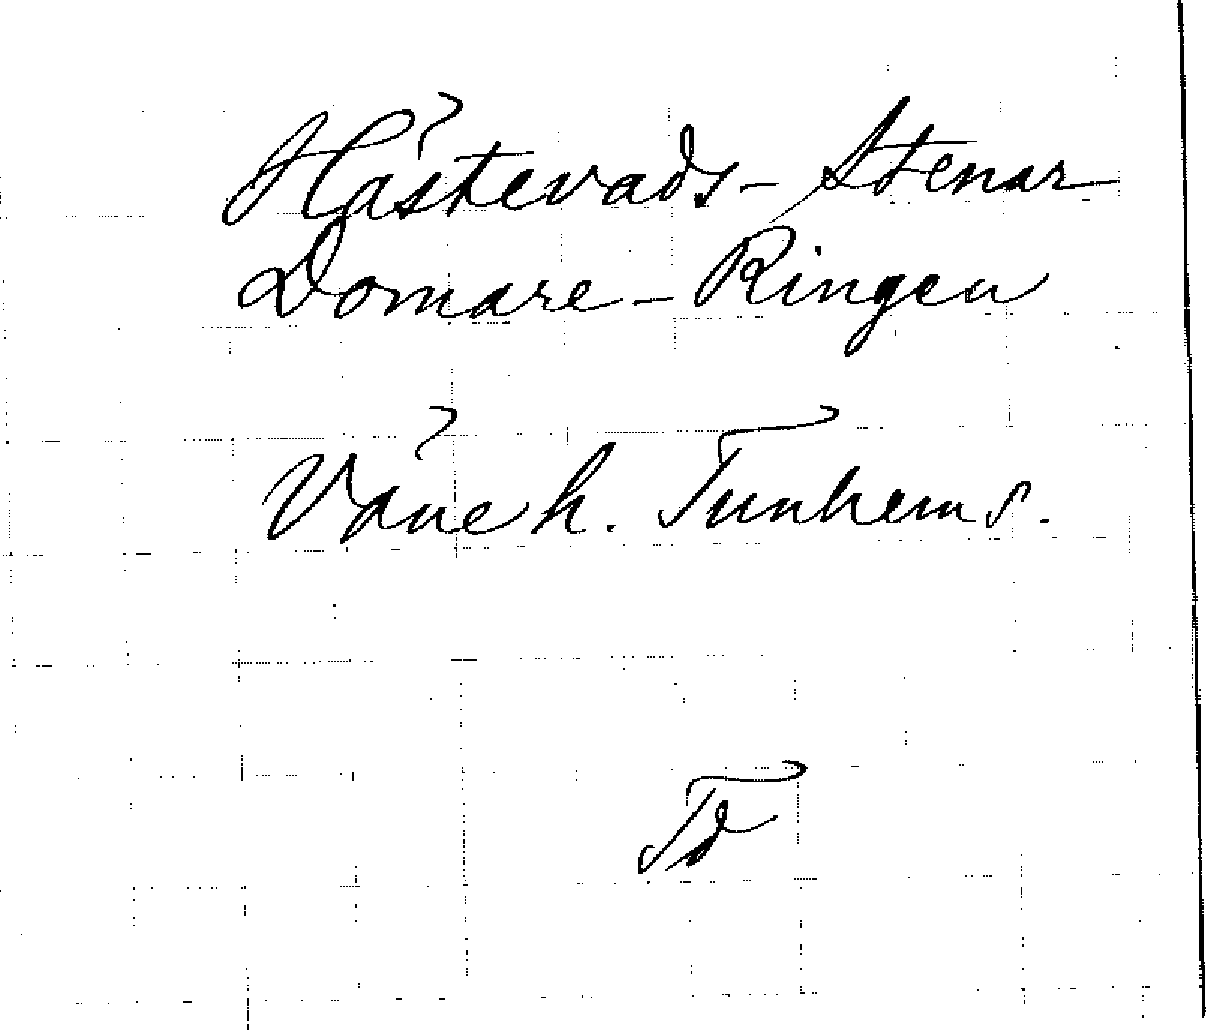 Håstevads-Stenar
Domare-Ringen
Våne h. Tunhems s.
Td